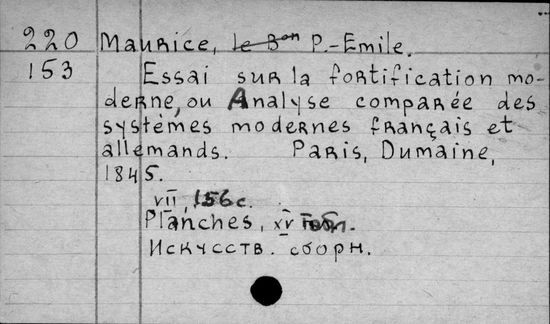 220 Maurice, le Bon P.-Emile.
153 Essai sur la fortification mo-
derne, ou Analyse comparée des
systèmes modernes français et
allemands. Paris, Dumaine,
1845.
VII, 156 с.
Planches, XV табл.
Искусств. сборн.